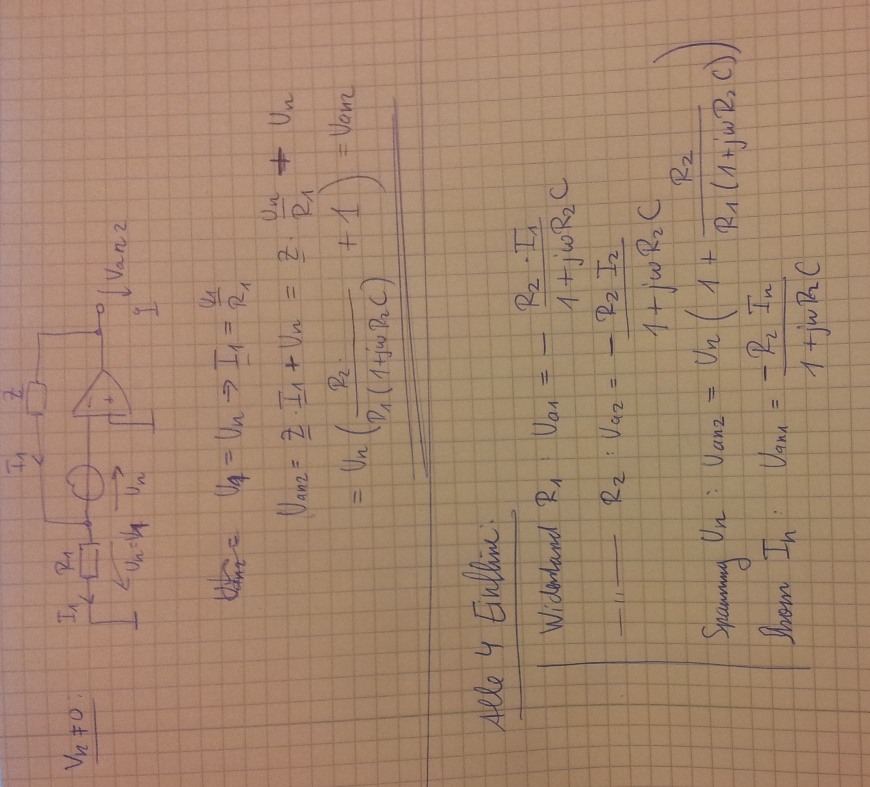 Vn ≠ 0:
I1 R1 I1 Z
Un=U1 Un Uan2
U1 = Un → I1 = U1/R1
Uan2 = Z · I1 + Un = Z · Un/R1 + Un
= Un ( R2/(R1(1+jωR2C)) + 1 ) = Uan2
Alle 4 Einflüsse:
Widerstand R1 : Ua1 = - R2 · I1/(1+jωR2C)
—"— R2 : Ua2 = - R2 I2/(1+jωR2C)
Spannung Un : Uan2 = Un ( 1 + R2/(R1(1+jωR2C)) )
Strom In : Uan1 = - R2 In/(1+jωR2C)